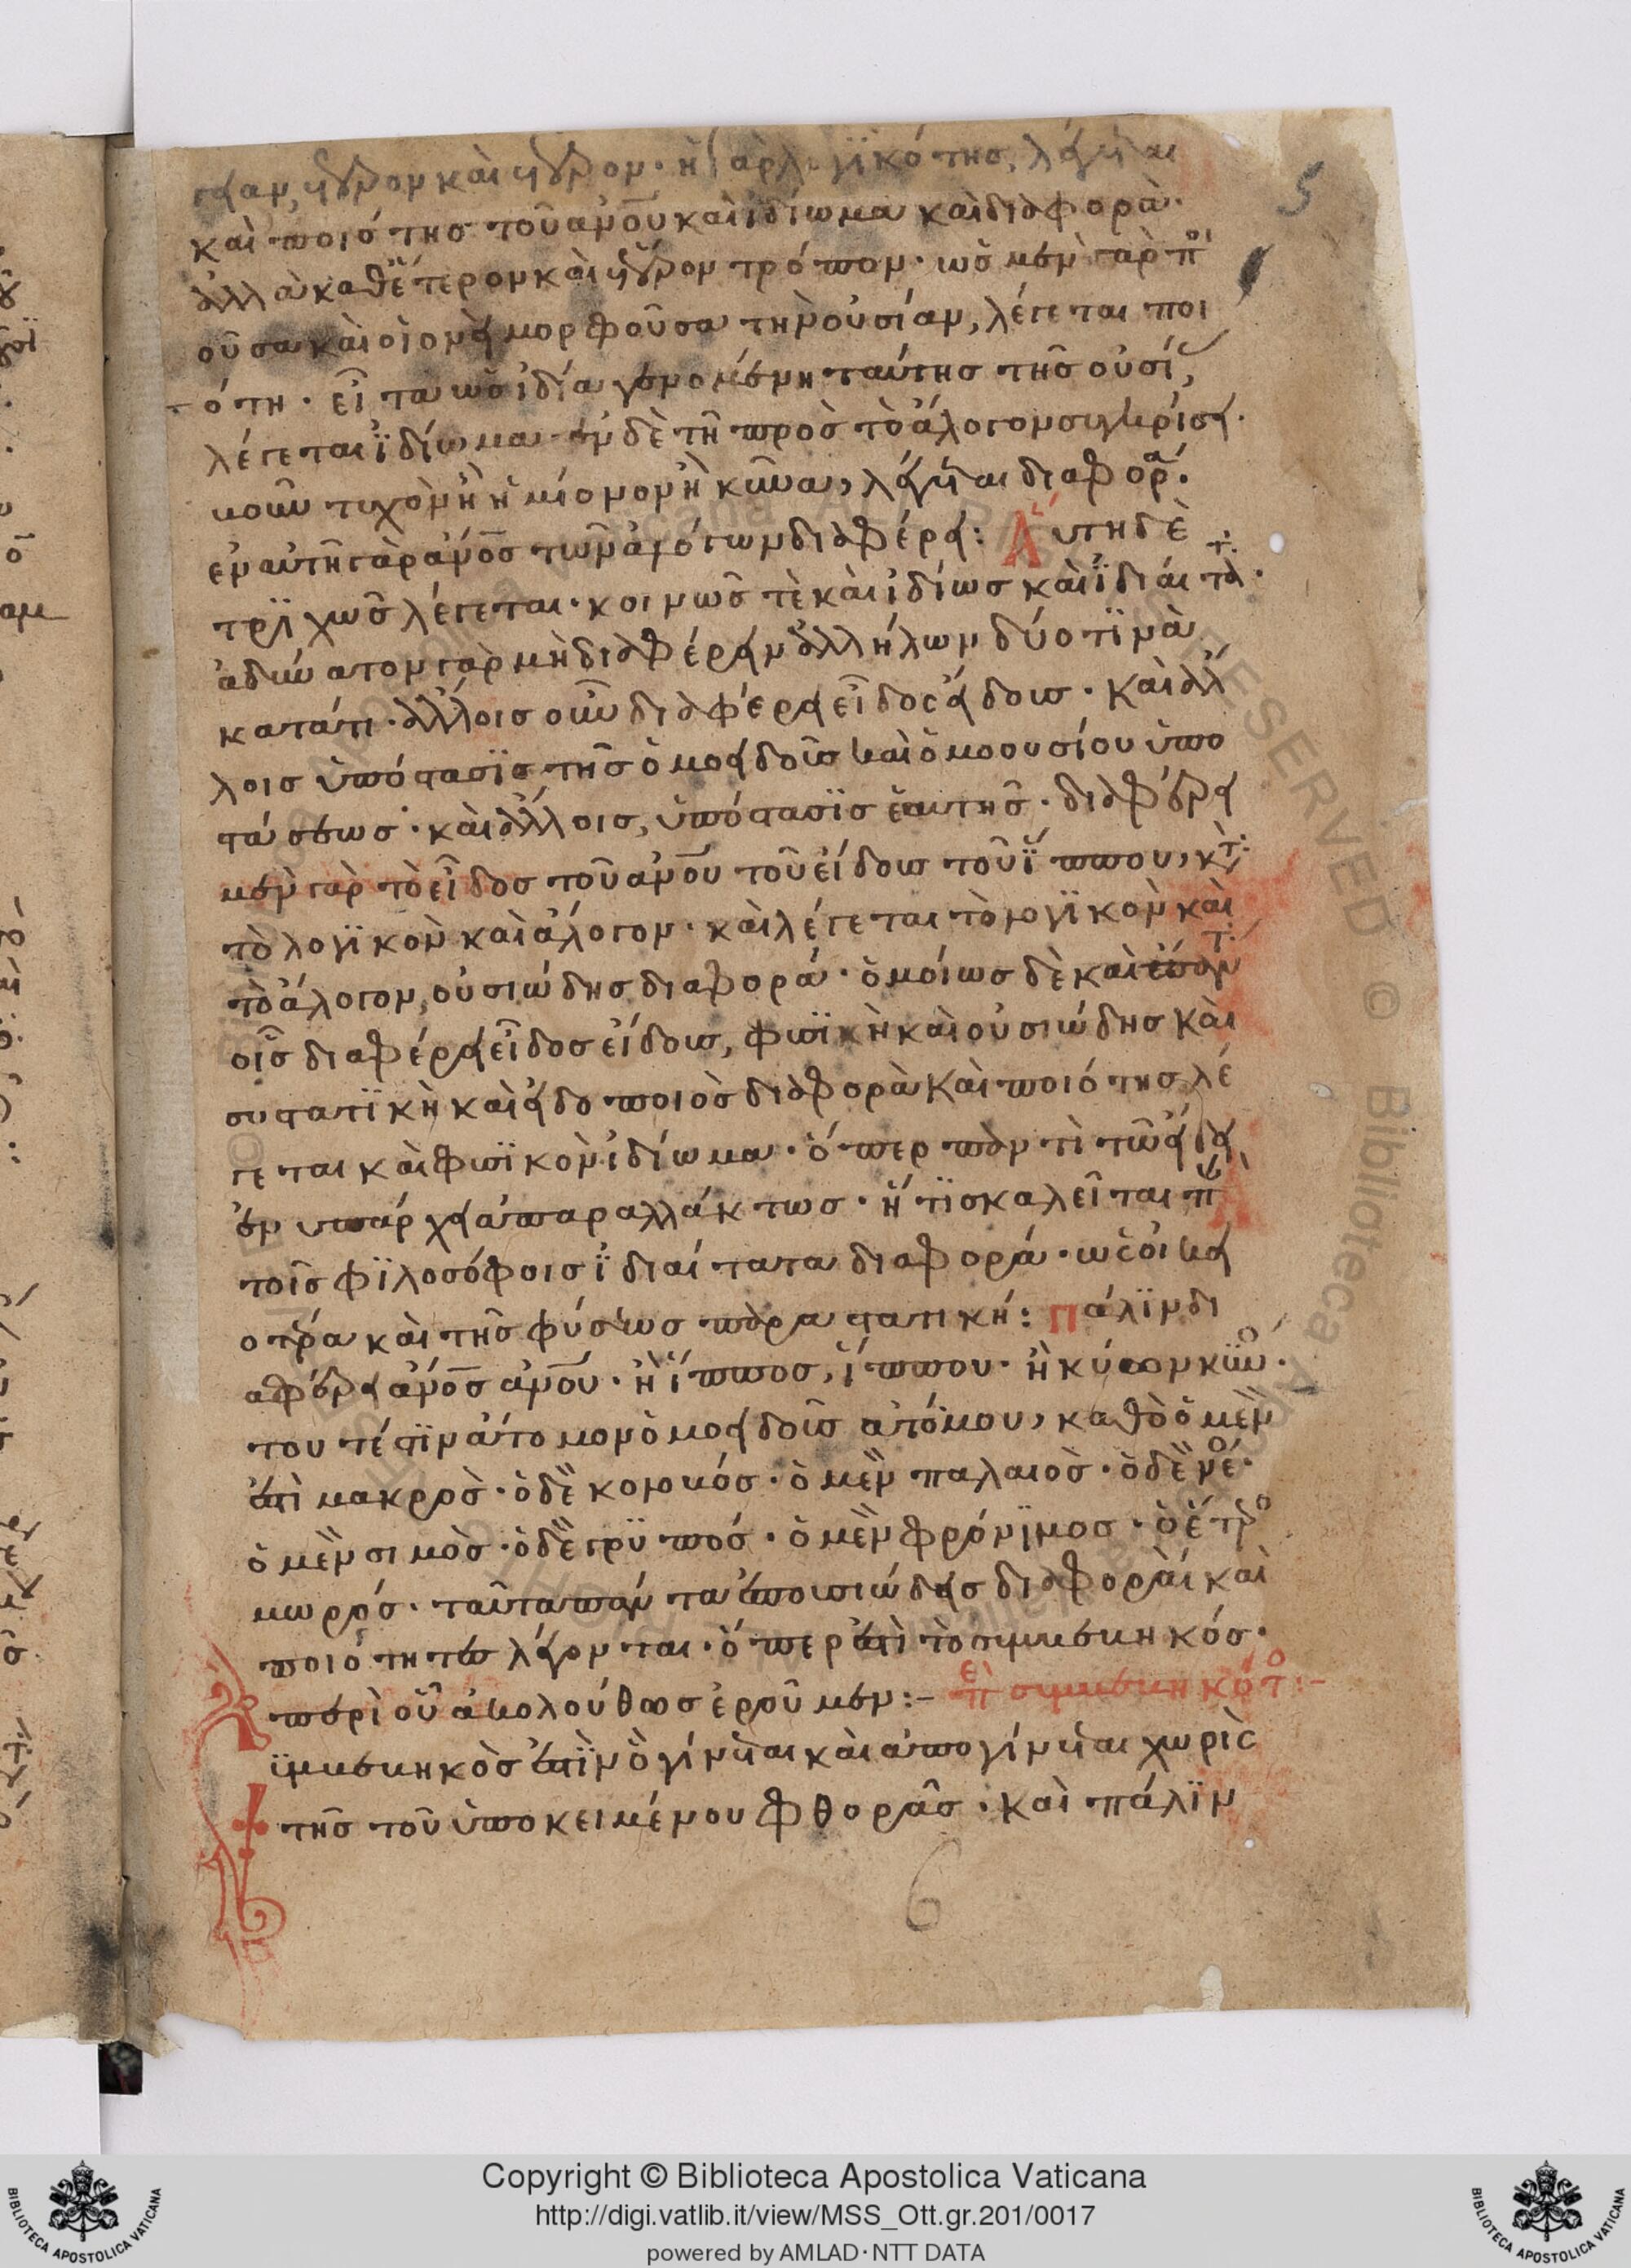 5
καὶ ποιότης τοῦ ἀνου καὶ ἰδίωμα καὶ διαφορὰ·
ἀλλὰ καθ' ἕτερον καὶ ἕτερον τρόπον· ὡς μὲν γὰρ ποι
οῦσα καὶ οἱονεὶ μορφοῦσα τὴν οὐσίαν, λέγεται ποι
ότης· εἶτα ὡς ἰδία γενομένη ταύτης τῆς οὐσί,
λέγεται ἰδίωμα· ἐν δὲ τῆ πρὸς τὸ ἄλογον συγκρίσει·
βοῦν τυχὸν ἢ ἡμίονον ἢ κύνα, λέγεται διαφορά·
ἐν αὐτῆ γὰρ ἀνος τῶν ἀλόγων διαφέρει: Αὕτη δὲ
τρϊχῶς λέγεται· κοινῶς τὲ καὶ ἰδίως καὶ ἰδιαίτατα·
ἀδύνατον γὰρ μὴ διαφέρειν ἀλλήλων δύο τϊνὰ
κατά τι· ἄλλοις οὖν διαφέρει εἶδος εἴδους· καὶ ἄλ
λοις ὑπόστασϊς τῆς ὁμοειδοῦς καὶ ὁμοουσίου ὑπο
στάσεως· καὶ ἄλλοις, ὑπόστασϊς ἑαυτῆς· διαφέρει
μὲν γὰρ τὸ εἶδος τοῦ ἀνου τοῦ εἴδους τοῦ ἵππου, κατὰ
τὸ λογϊκὸν καὶ ἄλογον· καὶ λέγεται τὸ λογϊκὸν καὶ
τὸ ἄλογον, οὐσιώδης διαφορά· ὁμοίως δὲ καὶ
οἷς διαφέρει εἶδος εἴδους, φυσϊκὴ καὶ οὐσιώδης καὶ
συστατϊκὴ καὶ εἰδοποιὸς διαφορὰ καὶ ποιότης λέ
γεται καὶ φυσϊκὸν ἰδίωμα· ὅπερ παντὶ τῶ εἴδει
ἐνυπάρχει ἀπαραλλάκτως· ἥτϊς καλεῖται π
τοῖς φϊλοσόφοις ἰδιαίτατα διαφορά· ὡς οἰκει
οτέρα καὶ τῆς φύσεως παραστατική: Πάλϊν δι
αφέρει ἀνος ἀνου· ἢ ἵππος, ἵππου· ἢ κύων κυνὸς·
τουτέστϊν ἄτομον ὁμοειδοῦς ἀτόμου, καθὸ ὁ μὲν
ἐστὶ μακρὸς· ὁ δὲ κολοβός· ὁ μὲν παλαιὸς· ὁ δὲ νέος·
ὁ μὲν σιμὸς· ὁ δὲ γρϋπός· ὁ μὲν φρόνϊμος· ὁ ἕτερος
μωρός· ταῦτα πάντα ἐπουσιώδεις διαφοραὶ καὶ
ποιότητες λέγονται· ὅπερ ἐστὶ τὸ συμβεβηκός·
περὶ οὗ ἀκολούθως ἐροῦμεν:– πε συμβεβηκότο:–
ϋμβεβηκὸς ἐστϊν ὃ γίνεται καὶ ἀπογίνεται χωρὶς
τῆς τοῦ ὑποκειμένου φθορᾶς· καὶ πάλϊν
6
Copyright © Biblioteca Apostolica Vaticana
http://digi.vatlib.it/view/MSS_Ott.gr.201/0017
powered by AMLAD·NTT DATA
BIBLIOTECA APOSTOLICA VATICANA
BIBLIOTECA APOSTOLICA VATICANA